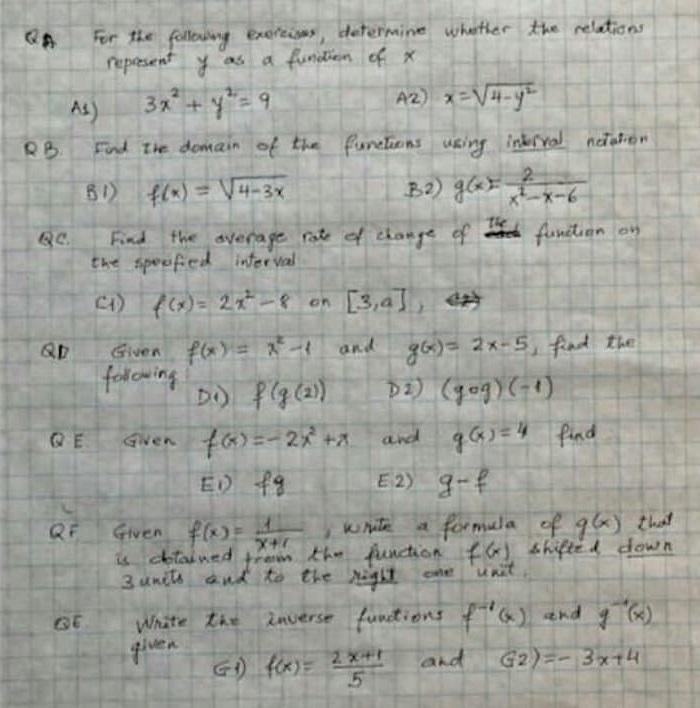 QA For the following exercises, determine whether the relations
represent y as a function of x
A1) 3x² + y² = 9 A2) x = √4-y²
QB. Find the domain of the functions using interval notation
B1) f(x) = √4-3x B2) g(x) = 2/(x²-x-6)
QC. Find the average rate of change of the function on
the specified interval
C1) f(x) = 2x² - 8 on [3,a],
QD Given f(x) = x²-1 and g(x) = 2x-5, find the
following:
D1) f(g(2)) D2) (gog)(-1)
QE Given f(x) = -2x² + x and g(x) = 4 find
E1) fg E2) g-f
QF Given f(x) = 1/(x+1), write a formula of g(x) that
is obtained from the function f(x) shifted down
3 units and to the right one unit.
QE Write the inverse functions f⁻¹(x) and g⁻¹(x)
given
G1) f(x) = (2x+1)/5 and G2) = -3x+4